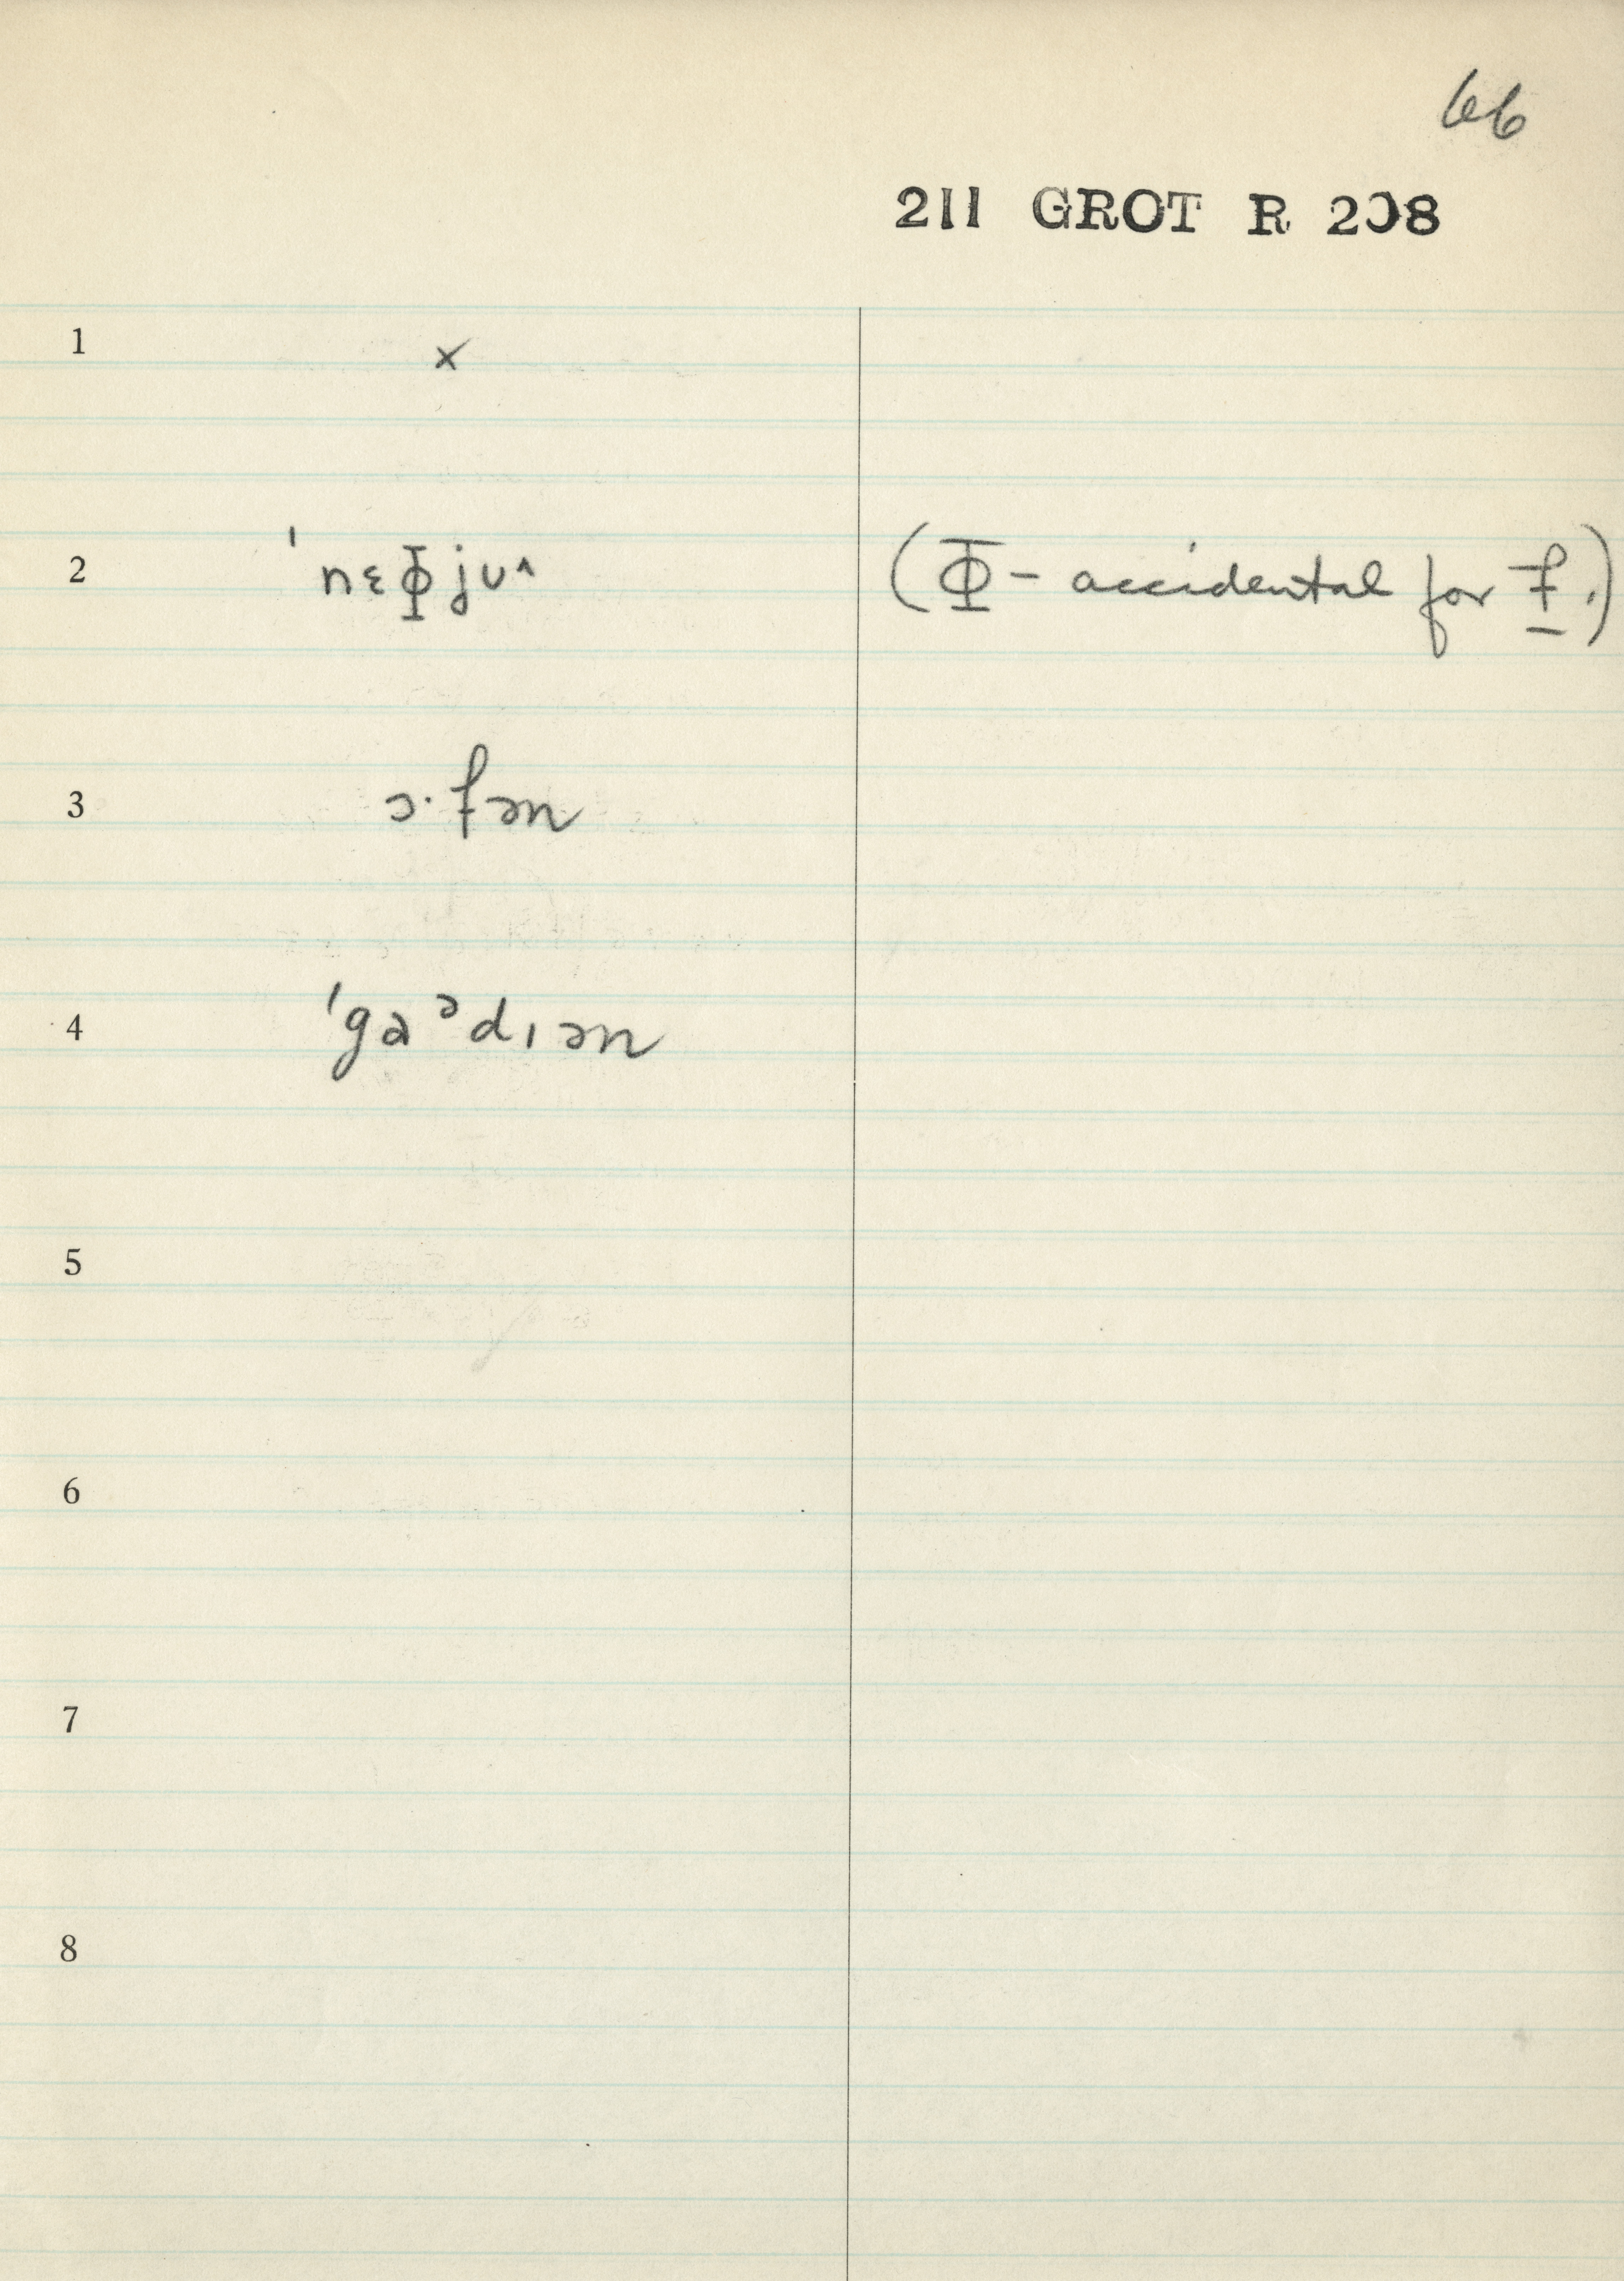 66
211 GROT R 208
1 ×
2 ˈnɛΦjuˆ (Φ – accidental for f.)
3 ɔ·fən
4 ˈgaᵊdɪən
5
6
7
8